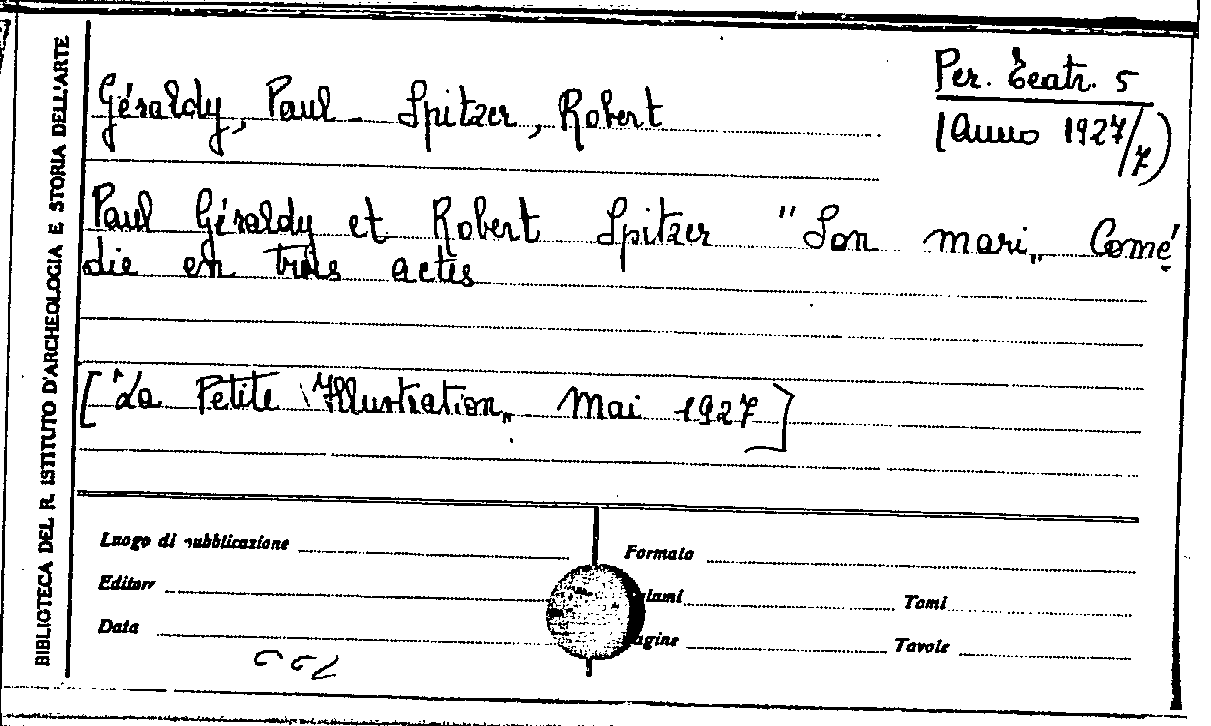 BIBLIOTECA DEL R. ISTITUTO D'ARCHEOLOGIA E STORIA DELL'ARTE
Per. Teatr. 5
(Anno 1927/7)
Géraldy, Paul - Spitzer, Robert
Paul Géraldy et Robert Spitzer "Son mari„ Comé
die en trois actes
["La Petite Illustration„ Mai 1927]
Luogo di pubblicazione
Formato
Editore
Tomi
Data
Tavole